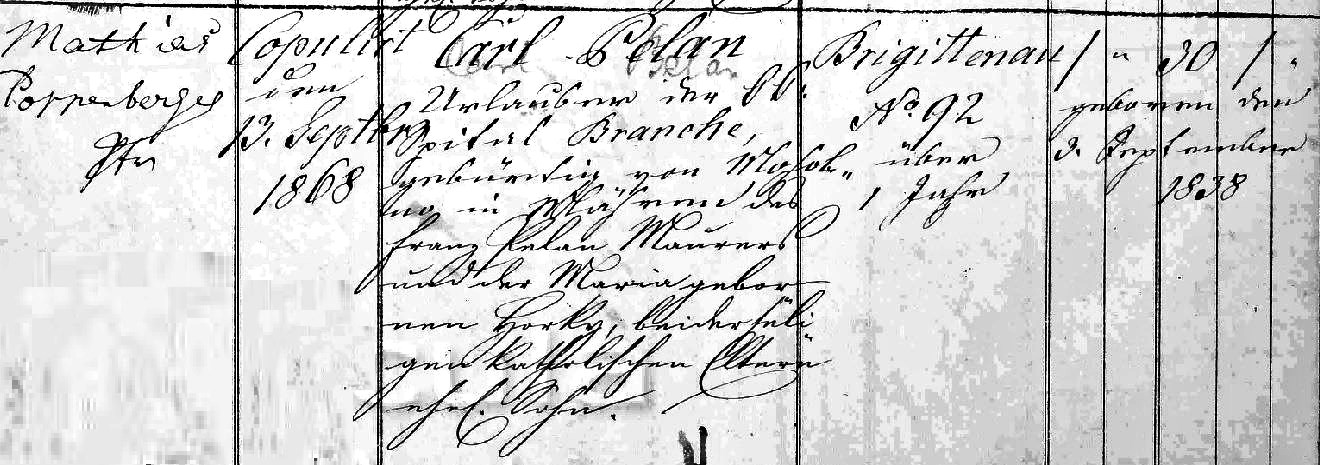 Mathias
Poppenberger
Pfr
Copulirt
den
13. Septbr
1868
Carl Pelan
Urlauber der
Spital Branche,
gebürtig von
in Mähren des
Franz Pelan Maurers
und der Maria gebor
nen Horky, beider seli
gen katholischen Eltern
ehel. Sohn.
Brigittenau
No 92
über
1 Jahr
/ " 30 / "
geboren den
3. September
1838